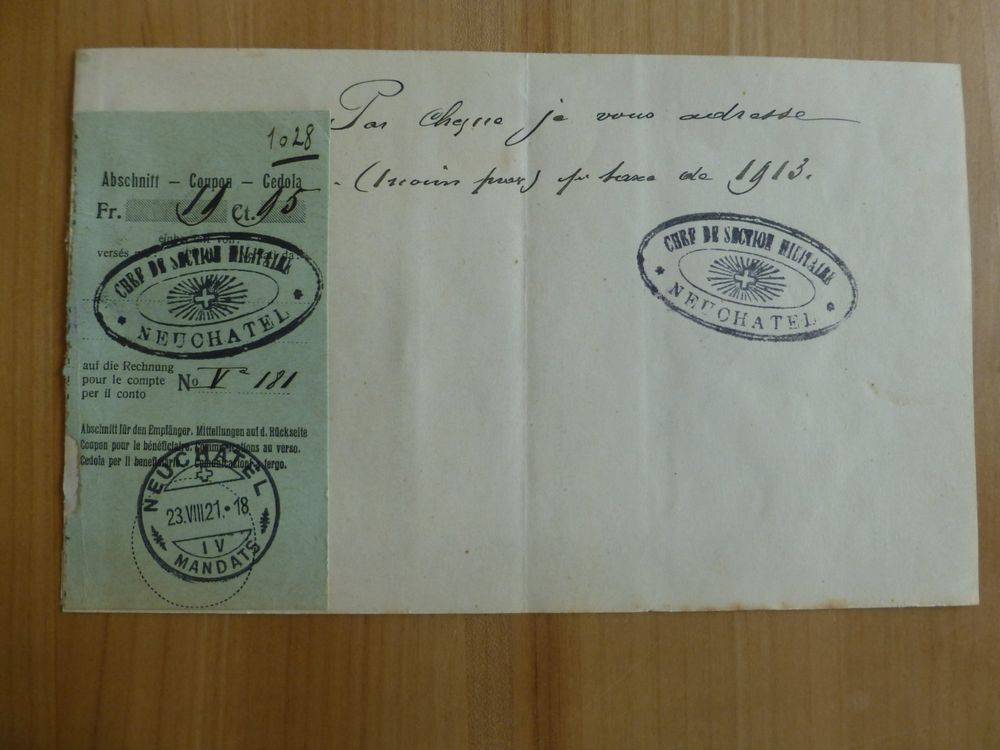 Par chèque je vous adresse
(moins port) pr taxe de 1913.
CHEF DE SECTION MILITAIRE
NEUCHATEL
1028
Abschnitt — Coupon — Cedola
Fr. 19 Ct. 95
versés
CHEF DE SECTION MILITAIRE
NEUCHATEL
auf die Rechnung
pour le compte
per il conto
No Va 181
Abschnitt für den Empfänger. Mitteilungen auf d. Rückseite
Coupon pour le bénéficiaire. Communications au verso.
Cedola per il beneficiario. Comunicazioni a tergo.
NEUCHATEL
23.VIII.21.•18
IV
MANDATS